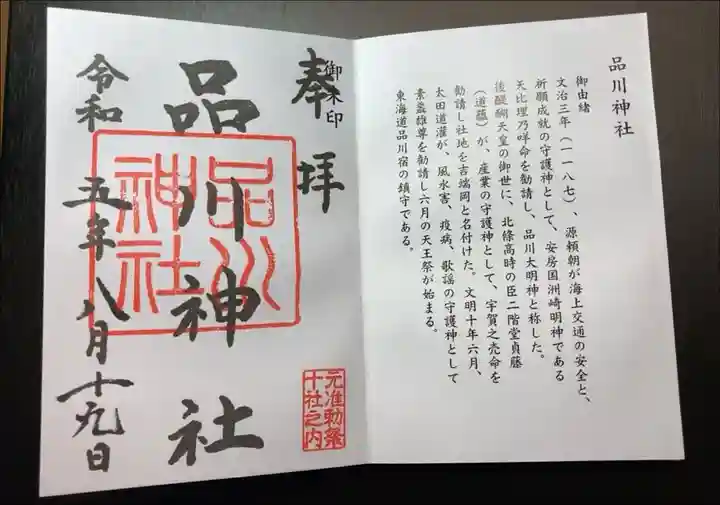 品川神社
御由緒
文治三年(一一八七)、源頼朝が海上交通の安全と、
祈願成就の守護神として、安房国洲崎明神である
天比理乃咩命を勧請し、品川大明神と称した。
後醍醐天皇の御世に、北條高時の臣二階堂貞藤
(道蘊)が、産業の守護神として、宇賀之売命を
勧請し社地を吉端岡と名付けた。文明十年六月、
太田道灌が、風水害、疫病、歌謡の守護神として
素盞雄尊を勧請し六月の天王祭が始まる。
東海道品川宿の鎮守である。
御朱印
奉拝
品川神社
令和五年八月十九日
品川
神社
元准勅祭
十社之内